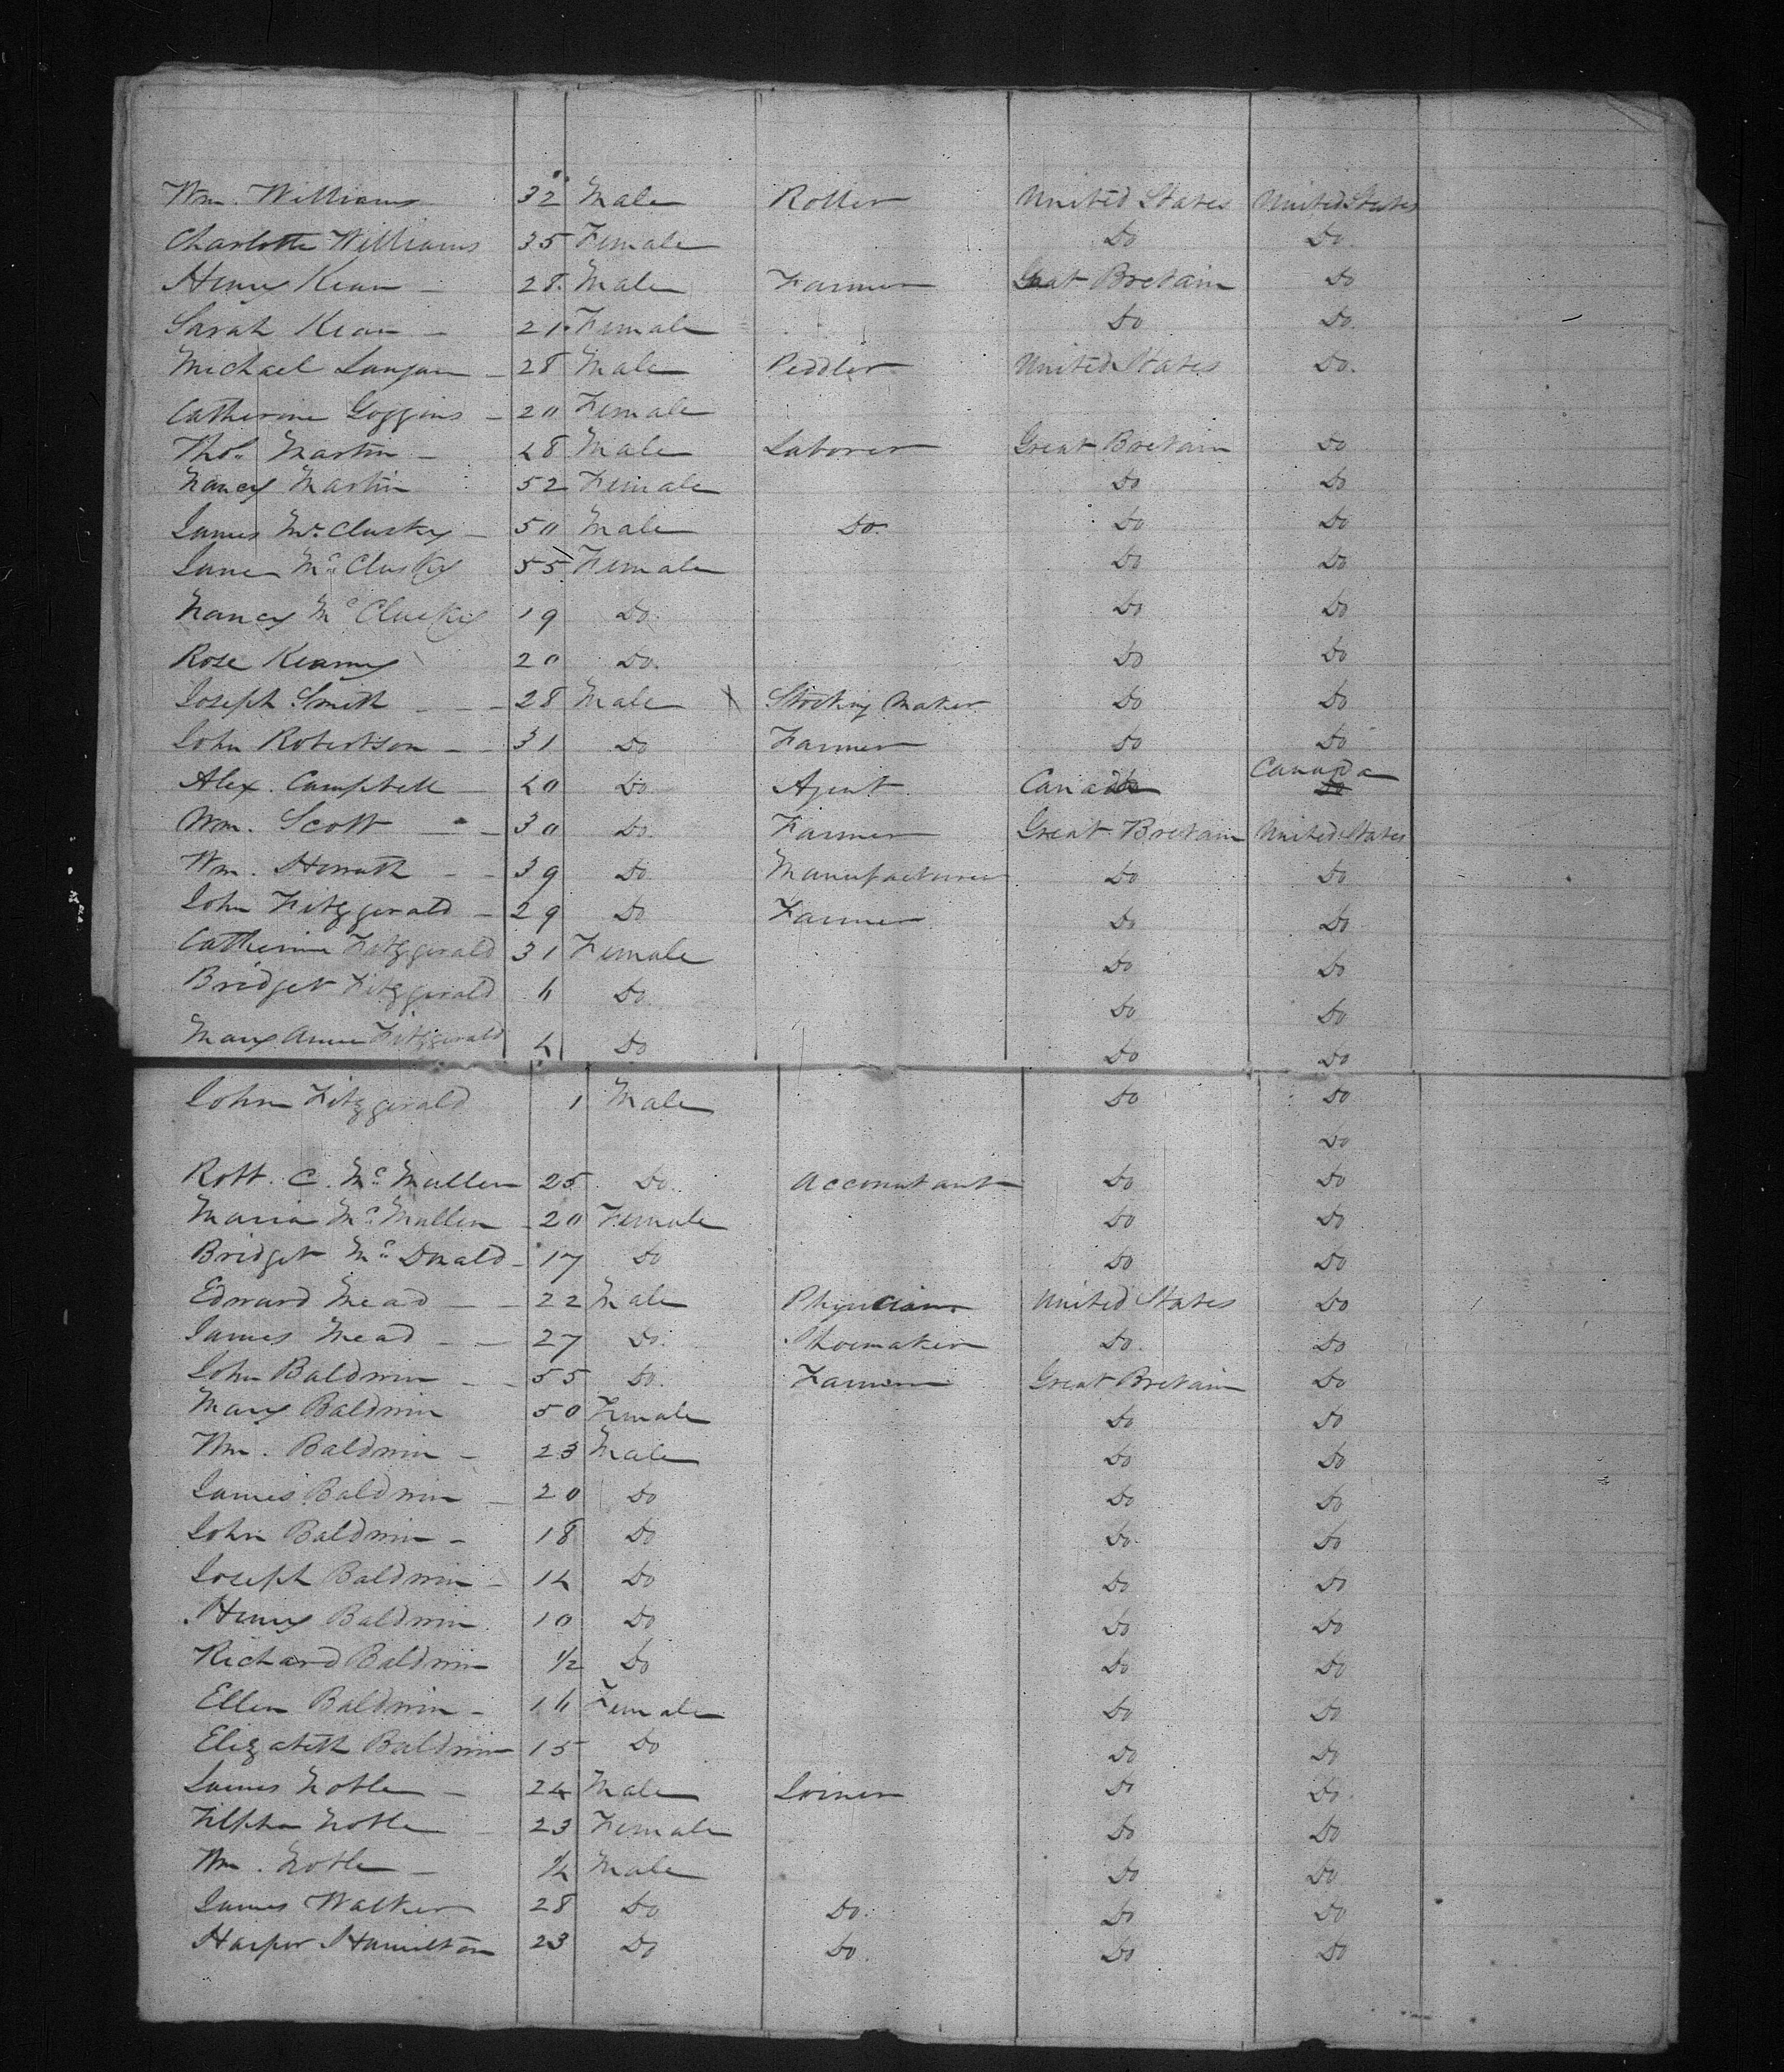 Wm. Williams 32 Male Roller United States United States
Charlotte Williams 35 Female Do Do.
Henry Kean 28. Male Farmer Great Bretain Do
Sarah Kean 21. Female Do Do.
Michael 28 Male Peddler United States Do.
Catherine Goggins 20 Female
Thos. Martin 28 Male Laborer Great Bretain Do
Nancy Martin 52 Female Do Do
James Mc. Clusky 50 Male Do. Do Do
Jane Mc Clusky 55 Female Do Do
Nancy Mc Clusky 19 Do. Do Do
Rose Kearny 20 Do. Do Do
Joseph Smith 28 Male Stocking Maker Do Do
John Robertson 31 Do Farmer Do Do
Alex. Campbell 40 Do Agent Canada Canada Do
Wm. Scott 30 Do. Farmer Great Bretain United States
Wm. 39 Do Manufacturer Do Do
John Fitzgerald 29 Do Farmer Do Do
Catherine Fitzgerald 31 Female Do Do
Bridget Fitzgerald 6 Do. Do Do
Mary Anne Fitzgerald 4 Do Do Do
John Fitzgerald 1 Male Do Do
Do
Robt. C. Mc Mullen 25 Do. Accountant Do Do
Maria Mc Mullen 20 Female Do Do
Bridget Mc Dnald 17 Do Do Do
Edward Mead 22 Male Physician United States Do
James Mead 27 Do. Shoemaker Do. Do
John Baldwin 55 Do. Farmer Great Bretain Do
Mary Baldwin 50 Female Do Do
Wm. Baldwin 23 Male Do Do
James Baldwin 20 Do Do Do
John Baldwin 18 Do Do. Do
Joseph Baldwin 14 Do Do Do
Henry Baldwin 10 Do Do Do
Richard Baldwin 1/2 Do Do Do
Ellen Baldwin 16 Female Do Do
Elizabeth Baldwin 15 Do Do Do
James Noble 24 Male Joiner Do Do.
Noble 23 Female Do Do
Wm. Noble 1/4 Male Do Do
James Walker 28 Do Do. Do Do
Harper Hamilton 23 Do Do. Do Do